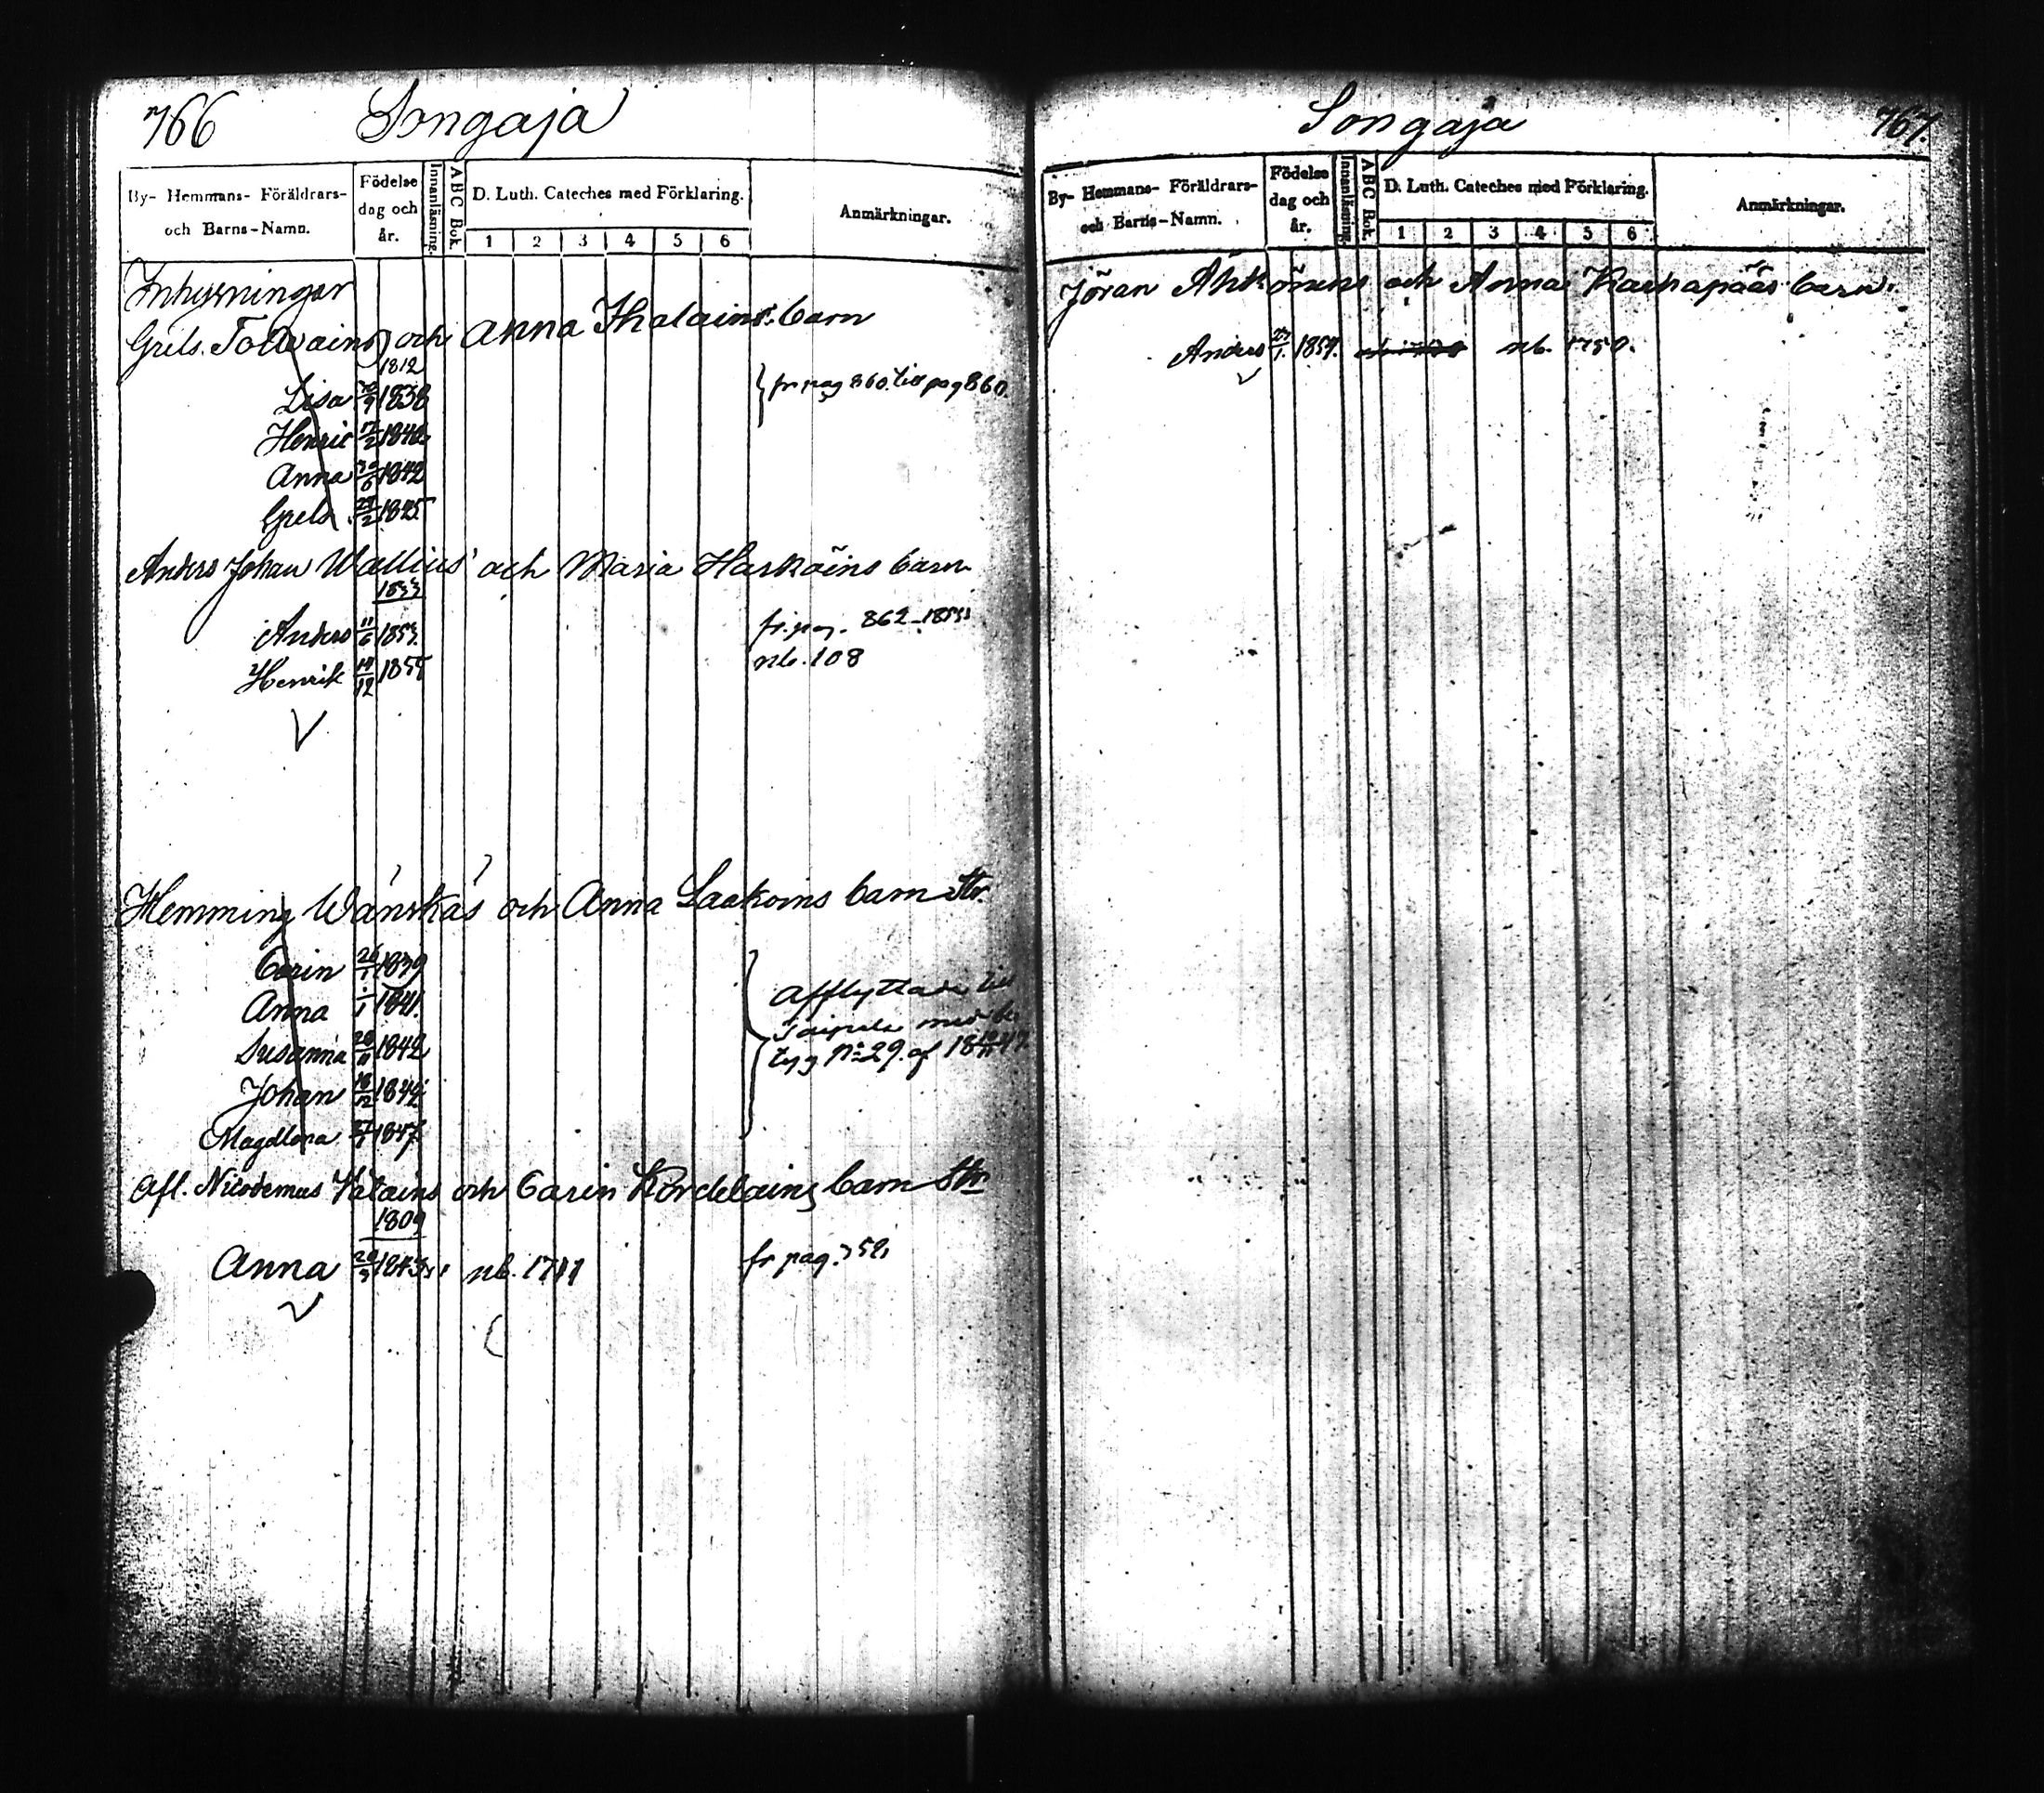 766 Songaja
By- Hemmans- Föräldrars- och Barns-Namn.
Födelse dag och år.
Innanläsning.
ABC Bok.
D. Luth. Cateches med Förklaring.
1 2 3 4 5 6
Anmärkningar.
Inhysningar
Grels och Anna Ihalains barn
1812
Lisa 1838 fr pag 860. till pag 860.
Henric 1840
Anna 1842
Grels 1845
Anders Johan Wallius och Maria Harkõins barn
1833
Anders 11/6 1853. fr. pag. 862-1855
Henrik 14/12 1855 nb. 108
Hemming Wänskäs och Anna Laakoins barn
Carin 1839
Anna 1841. Afflyttade till
Susanna 1842 Taipale med be
Johan 1844 tyg No 29. af
Magdlena 1847
Afl. Nicodemus och Carin Kordelains barn
1809
Anna 1843 nb. 1711 fr pag. 752
Songaja 767.
By- Hemmans- Föräldrars- och Barns-Namn.
Födelse dag och år.
Innanläsning.
ABC Bok.
D. Luth. Cateches med Förklaring.
1 2 3 4 5 6
Anmärkningar.
Jöran Ahkõnens och Anna Karhapääs barn.
Anders 27/1 1857. nb. 1750.